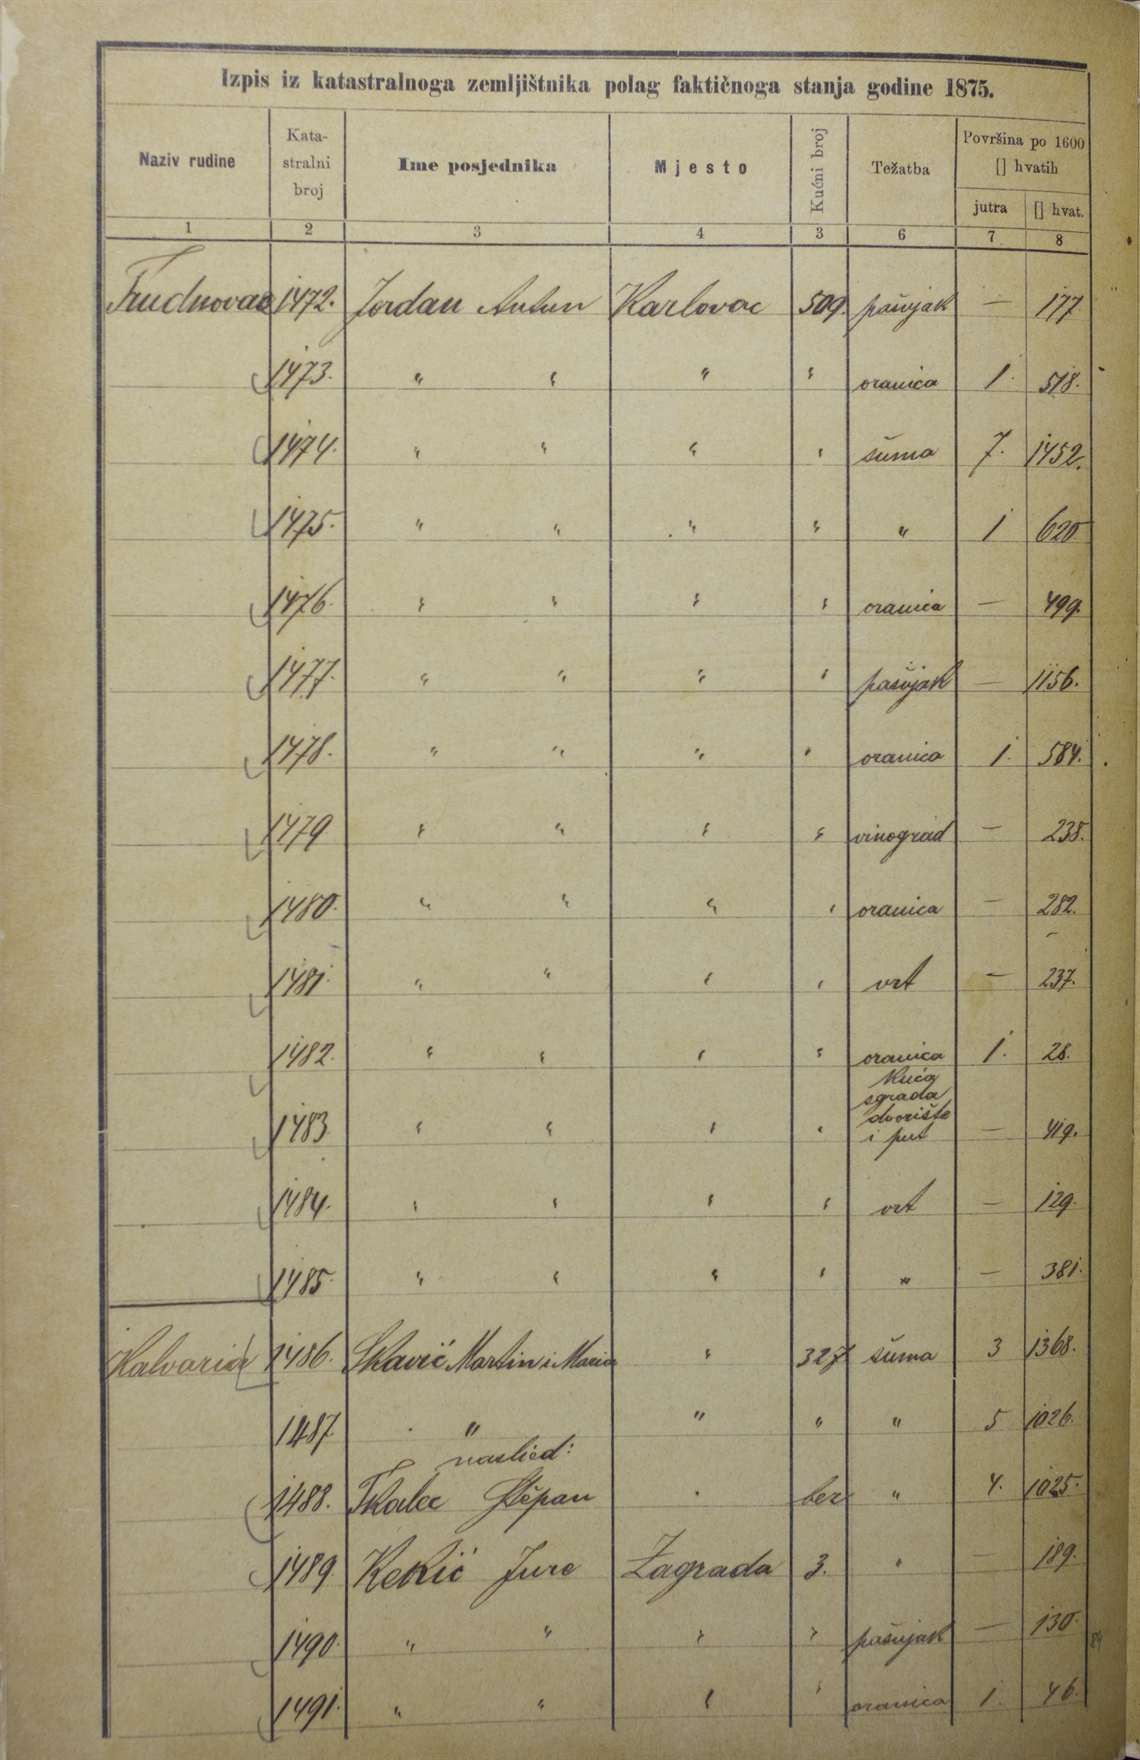 Izpis iz katastralnoga zemljištnika polag faktičnoga stanja godine 1875.
Naziv rudine Katastralni broj Ime posjednika Mjesto Kućni broj Težatba Površina po 1600 [] hvatih
jutra [] hvat.
1 2 3 4 3 6 7 8
Trudnovac 1472. Jordan Antun Karlovac 509. pašnjak — 177
1473. " " " " oranica 1. 518.
1474. " " " " šuma 7. 1452.
1475. " " " " " 1 620
1476. " " " " oranica — 499.
1477. " " " " pašnjak — 1156.
1478. " " " " oranica 1. 584.
1479 " " " " vinograd — 238.
1480. " " " " oranica — 282.
1481. " " " " vrt — 237.
1482. " " " " oranica 1. 28.
kuća
sgrada
dvorište
1483 " " " " i put — 419.
1484. " " " " vrt — 129.
1485. " " " " " — 381.
Kalvaria 1486. Skavić Martin i Maria " 327 šuma 3 1368.
1487. " " " " 5 1026.
naslied:
1488. Tkalec Štěpan " bez " 4. 1025.
1489 Kekić Jure Zagrada 3. " — 189.
1490. " " " " pašnjak — 130.
1491. " " " " oranica 1. 46.